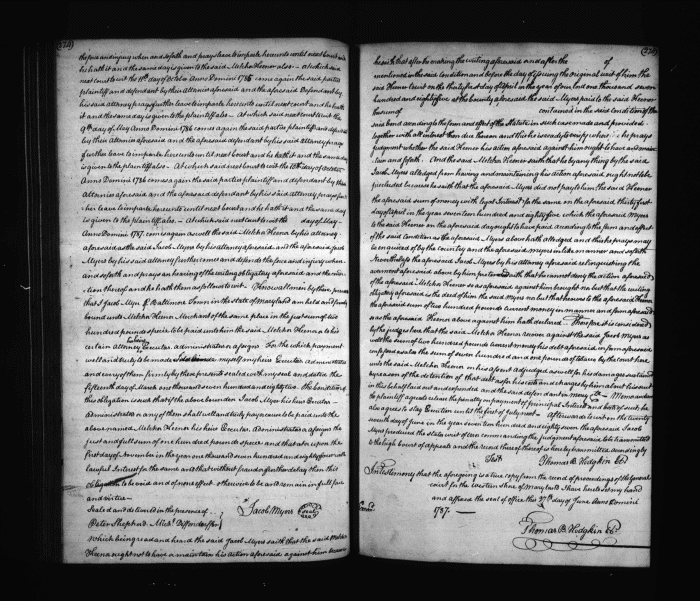 the force and injury when and so forth and prays leave to imparle hereunto until next Court and
he hath it and the same day is given to the said Melchor Keener also - At which said
next court to wit the 11th day of October Anno Domini 1785 come again the said parties
plaintiff and defendant by their attornies aforesaid and the aforesaid Defendant by
his said attorney prays further leave to imparle hereunto until next court and he hath
it and the same day is given to the plaintiff also - At which said next court to wit the
9th day of May Anno Domini 1786 comes again the said parties plaintiff and defendant
by their attornies aforesaid and the aforesaid defendant by his said attorney prays
further leave to imparle hereunto until next Court and he hath it and the same day
is given to the plaintiff also. At which said next court to wit the 10th day of October
Anno Domini 1786 comes again the said parties plaintiff and defendant by their
Attornies aforesaid and the aforesaid defendant by his said attorney prays fur
ther leave to imparle hereunto until next court and he hath it and the same day
is given to the plaintiff also. - At which said next court to wit the day of May
Anno Domini 1787 comes again as well the said Melchor Keener by his attorney
aforesaid as the said Jacob Myers by his attorney aforesaid and the aforesaid Jacob
Myers by his said attorney further comes and defends the force and injury when
and so forth and prays an hearing of the writing obligatory aforesaid and the con
dition thereof and he hath them as follows to wit. Know all men by these presents
that I Jacob Myers of Baltimore Town in the state of Maryland am held and firmly
bound unto Melchor Keener Merchant of the same place in the just sum of two
hundred pounds specie to be paid unto him the said Melchor Keener or to his
certain Attorney Executor administrators or assigns. For the which payment
well and truly to be made I do bind myself my heirs Executor administrators
and every of them firmly by these presents sealed with my seal and dated the
fifteenth day of March one thousand seven hundred and eighty two. the condition of
this obligation is such that if the above bounden Jacob Myers his heirs Executor
Administrators or any of them shall well and truly pay or cause to be paid unto the
above named Melchor Keener his heirs Executor Administrators or assigns the
just and full sum of one hundred pounds specie and that at or upon the
first day of November in the year one thousand seven hundred and eighty four with
lawful Interest for the same and that without fraud or further delay then this
Obligation to be void and of none effect otherwise to be and remain in full force
and virtue -
Sealed and delivered in the presence of Jacob Myers seal
Peter Shepherd. Mich. Diffenderffer
Which being read and heard the said Jacob Myers saith that the said Melchor
Keener ought not to have or maintain his action aforesaid against him because
he saith that after the making the writing aforesaid and after the of
mentioned in the said Condition and before the day of issuing the original writ of him the
said Keener to wit on the thirty first day of April in the year of our Lord one thousand seven
hundred and eighty five at the county aforesaid the said Myers paid to the said Keener
the sum of contained in the said Condition of the
said bond according to the form and effect of the Statute in such case made and provided
together with all interest then due thereon and this he is ready to verify where he prays
judgment whether the said Keener his action aforesaid against him ought to have and main
tain and so forth. And the said Melchor Keener saith that he by any thing by the said
Jacob Myers alledged from having and maintaining his action aforesaid ought not to be
precluded because he saith that the aforesaid Myers did not pay to him the said Keener
the aforesaid sum of money with legal Interest for the same on the aforesaid thirty first
day of April in the year seventeen hundred and eighty five which the aforesaid Myers
to the said Keener on the aforesaid day ought to have paid according to the form and effect
of the said condition as the aforesaid Myers above hath alledged and this he prays may
be enquired of by the country and the aforesaid Myers in like manner and so forth
Nevertheless the aforesaid Jacob Myers by his Attorney aforesaid relinquishing the
averment aforesaid above by him pretended saith that he cannot deny the action aforesaid
of the aforesaid Melchor Keener so as aforesaid against him brought nor but that the writing
obligatory aforesaid is the deed of him the said Myers nor but that he owes to the aforesaid Keener the
aforesaid sum of two hundred pounds current money in manner and form aforesaid
as the aforesaid Keener above against him hath declared. Therefore it is considered
by the judges here that the said Melchor Keener recover against the said Jacob Myers as
well the sum of two hundred pounds current money his debt aforesaid in form aforesaid
confessed as also the sum of seven hundred and one pounds of tobacco by the court here
unto the said Melchor Keener on his assent adjudged as well for his damages sustained
by reason of the detention of that debt as for his costs and charges by him about his suit
in this behalf laid out and expended and the said defendant in mercy &c. Memorandum
the plaintiff agrees to release the penalty on payment of principal Interest and costs of suit he
also agrees to stay Execution until the first of July next - Afterwards to wit on the twenty
seventh day of June in the year seventeen hundred and eighty seven the aforesaid Jacob
Myers produced the states writ of error commanding the judgment aforesaid to be transmitted
to the high court of appeals and the record thereof thereof is here by transmitted accordingly
Test. Thomas B. Hodgkin Clk
In testimony that the aforegoing is a true copy from the record of proceedings of the general
court for the western shore of Maryland I have hereto set my hand
and affixed the seal of office this 27th day of June Anno Domini
1787. -
Thomas B. Hodgkin Clk.